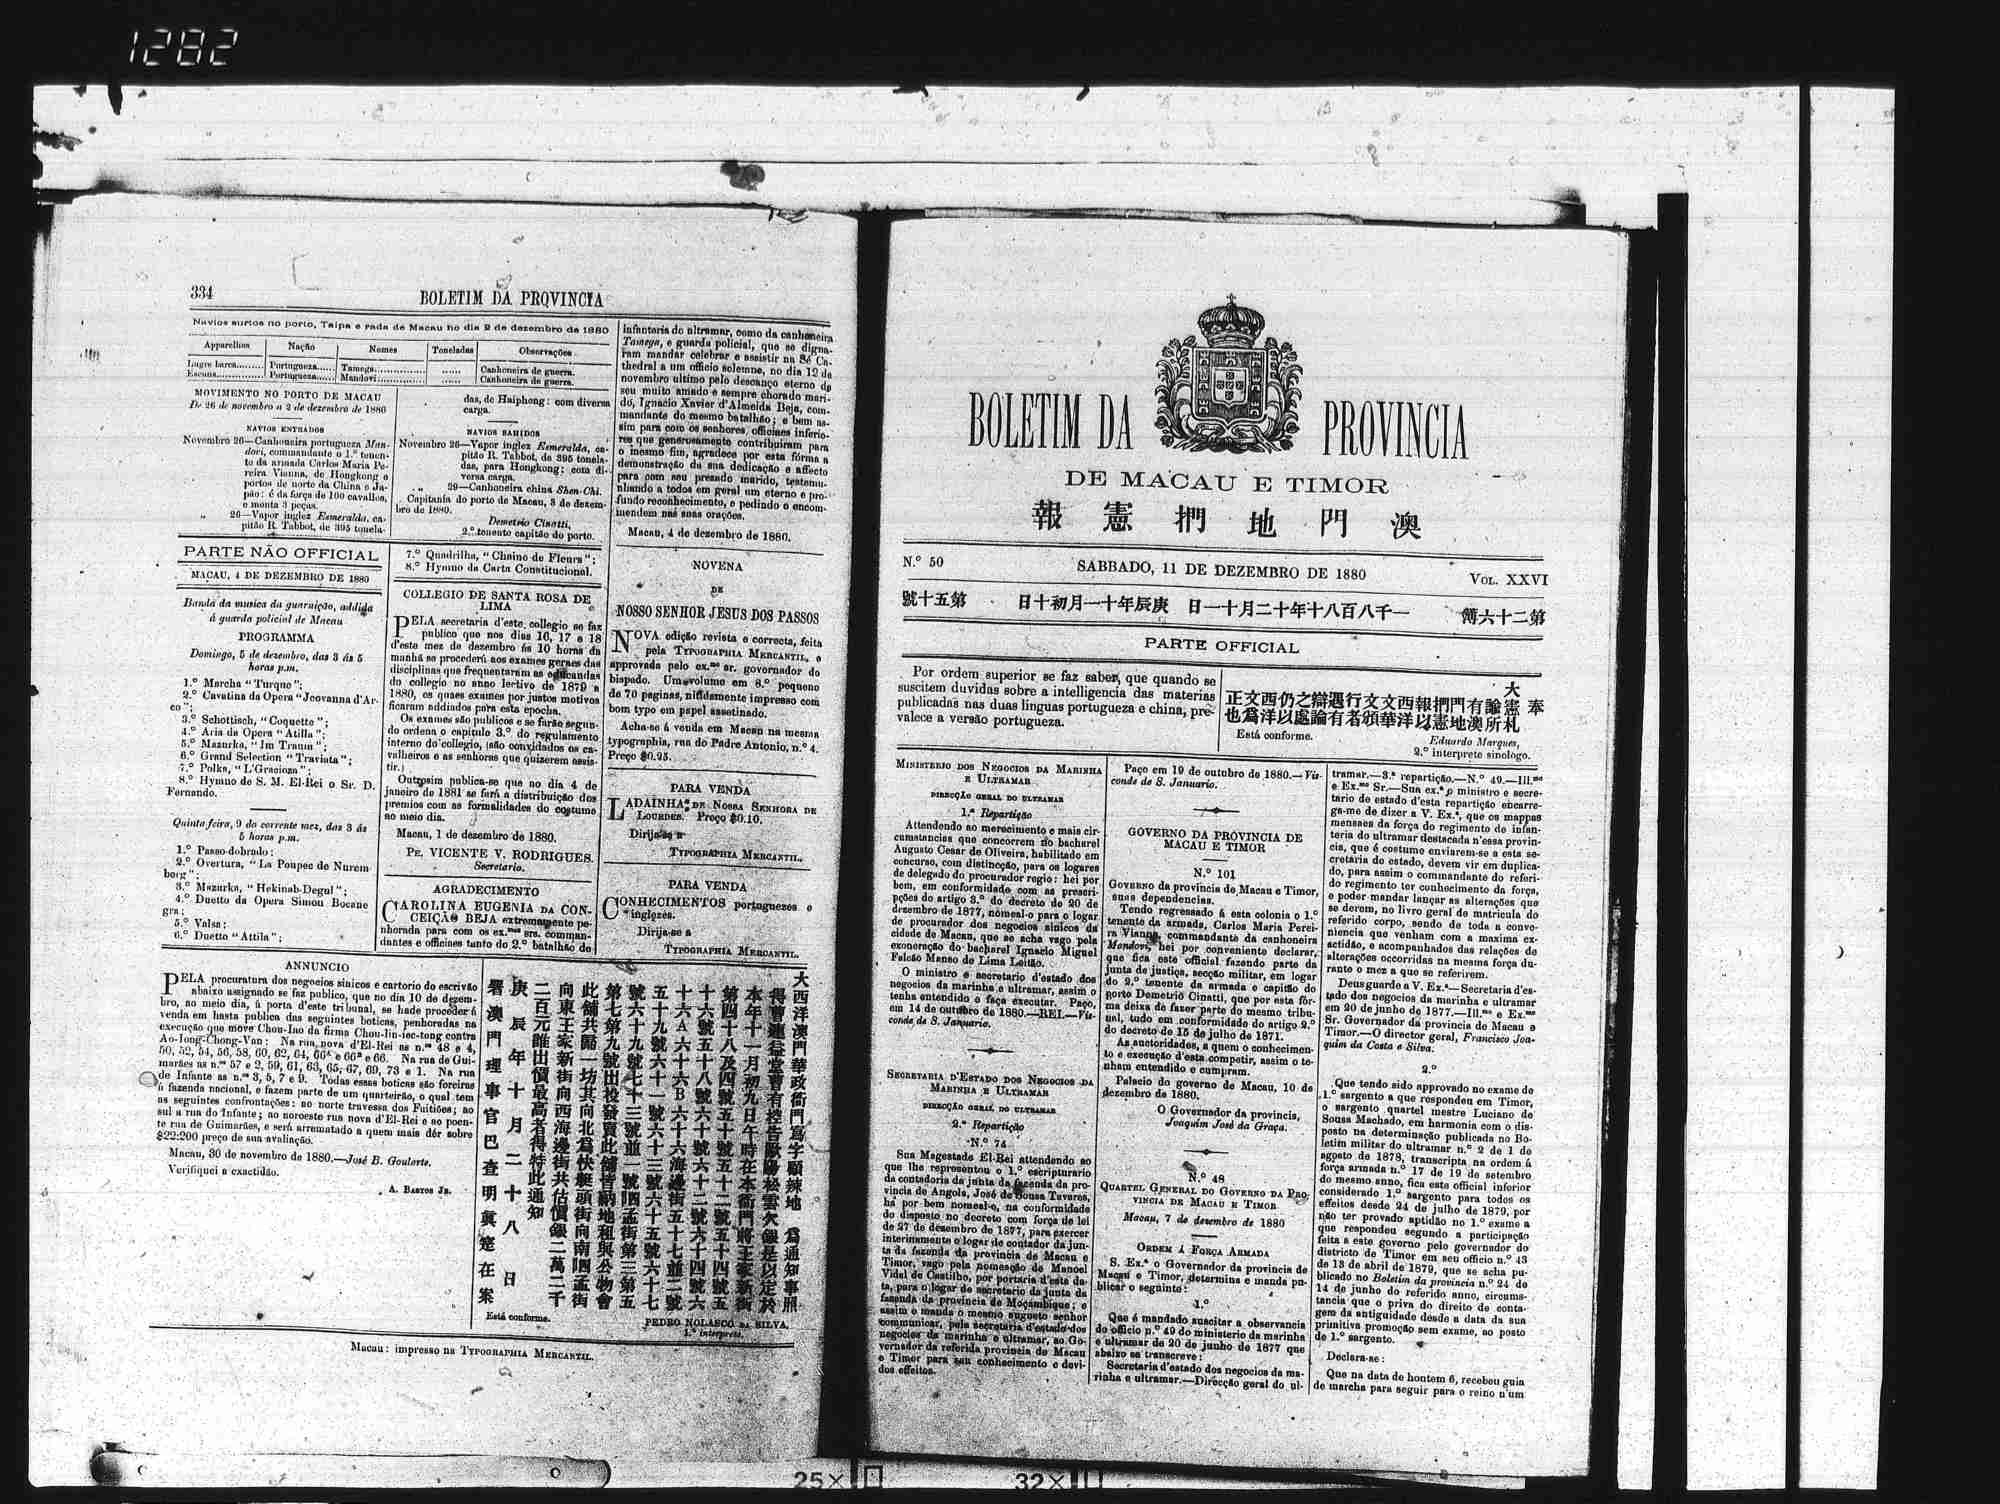 1282
334
BOLETIM DA PROVINCIA
Navios surtos no porto, Taipa e rada de Macau no dia 2 de dezembro de 1880
Apparelhos Nação Nomes Toneladas Observações
Lugre barca Portugueza Tamega Canhoneira de guerra.
Escuna Portugueza Mandovi Canhoneira de guerra.
MOVIMENTO NO PORTO DE MACAU
De 26 de novembro a 2 de dezembro de 1880
NAVIOS ENTRADOS
Novembro 26—Canhoneira portugueza Man-
dovi, commandante o 1.º tenen-
te da armada Carlos Maria Pe-
reira Vianna, de Hongkong e
portos de norte da China e Ja-
pão: é da força de 100 cavallos,
e monta 3 peças.
„ 26—Vapor inglez Esmeralda, ca-
pitão R. Tabbot, de 395 tonela-
das, de Haiphong: com diversa
carga.
NAVIOS SAHIDOS
Novembro 26—Vapor inglez Esmeralda, ca-
pitão R. Tabbot, de 395 tonela-
das, para Hongkong: com di-
versa carga.
„ 29—Canhoneira china Shen-Chi.
Capitania do porto de Macau, 3 de dezem-
bro de 1880.
Demetrio Cinatti,
2.º tenente capitão do porto.
PARTE NÃO OFFICIAL
MACAU, 4 DE DEZEMBRO DE 1880
Banda da musica da guarnição, addida
á guarda policial de Macau
PROGRAMMA
Domingo, 5 de dezembro, das 3 ás 5
horas p.m.
1.º Marcha "Turque";
2.º Cavatina da Opera "Jeovanna d'Ar-
co";
3.º Schottisch, "Coquette";
4.º Aria da Opera "Atilla";
5.º Mazurka, "Im Traum";
6.º Grand Selection "Traviata";
7.º Polka, "L'Gracioza";
8.º Hymno de S. M. El-Rei o Sr. D.
Fernando.
Quinta feira, 9 do corrente mez, das 3 ás
5 horas p.m.
1.º Passo-dobrado;
2.º Overtura, "La Poupee de Nurem
borg";
3.º Mazurka, "Hekinab-Degul";
4.º Duetto da Opera Simou Bocane
gra;
5.º Valsa;
6.º Duetto "Attila";
7.º Quadrilha, "Chaine de Fleurs";
8.º Hymno da Carta Constitucional.
COLLEGIO DE SANTA ROSA DE
LIMA
PELA secretaria d'este collegio se faz
publico que nos dias 16, 17 e 18
d'este mez de dezembro ás 10 horas da
manhã se procederá aos exames geraes das
disciplinas que frequentaram as educandas
do collegio no anno lectivo de 1879 a
1880, os quaes exames por justos motivos
ficaram addiados para esta epocha.
Os exames são publicos e se farão segun-
do ordena o capitulo 3.º do regulamento
interno do collegio, (são convidados os ca-
valheiros e as senhoras que quizerem assis-
tir.)
Outrosim publica-se que no dia 4 de
janeiro de 1881 se fará a distribuição dos
premios com as formalidades do costume
ao meio dia.
Macau, 1 de dezembro de 1880.
PE. VICENTE V. RODRIGUES.
Secretario.
AGRADECIMENTO
CAROLINA EUGENIA DA CON-
CEIÇÃO BEJA extremamente pe-
nhorada para com os ex.mos srs. comman-
dantes e officiaes tanto do 2.º batalhão de
infanteria do ultramar, como da canhoneira
Tamega, e guarda policial, que se digna-
ram mandar celebrar e assistir na Sé Ca-
thedral a um officio solemne, no dia 12 de
novembro ultimo pelo descanço eterno de
seu muito amado e sempre chorado mari-
do, Ignacio Xavier d'Almeida Beja, com-
mandante do mesmo batalhão; e bem as-
sim para com os senhores officiaes inferio-
res que generosamente contribuiram para
o mesmo fim, agradece por esta fórma a
demonstração da sua dedicação e affecto
para com seu presado marido, testemu-
nhando a todos em geral um eterno e pro-
fundo reconhecimento, e pedindo o encom-
mendem nas suas orações.
Macau, 4 de dezembro de 1880.
NOVENA
DE
NOSSO SENHOR JESUS DOS PASSOS
NOVA edição revista e correcta, feita
pela TYPOGRAPHIA MERCANTIL, e
approvada pelo ex.mo sr. governador do
bispado. Um volume em 8.º pequeno
de 70 paginas, nitidamente impresso com
bom typo em papel assetinado.
Acha-se á venda em Macau na mesma
typographia, rua do Padre Antonio, n.º 4.
Preço $0.25.
PARA VENDA
LADAINHA DE NOSSA SENHORA DE
LOURDES. Preço $0.10.
Dirija-se a
TYPOGRAPHIA MERCANTIL.
PARA VENDA
CONHECIMENTOS portuguezes e
inglezes.
Dirija-se a
TYPOGRAPHIA MERCANTIL.
ANNUNCIO
PELA procuratura dos negocios sinicos e cartorio do escrivão
abaixo assignado se faz publico, que no dia 10 de dezem-
bro, ao meio dia, á porta d'este tribunal, se hade proceder á
venda em hasta publica das seguintes boticas, penhoradas na
execução que move Chou-Iao da firma Chou-lin-iec-tong contra
Ao-Iong-Chong-Van: Na rua nova d'El-Rei as n.os 48 e 4,
50, 52, 54, 56, 58, 60, 62, 64, 66A e 66B e 66. Na rua de Gui-
marães as n.os 57 e 2, 59, 61, 63, 65, 67, 69, 73 e 1. Na rua
de Infante as n.os 3, 5, 7 e 9. Todas essas boticas são foreiras
á fazenda nacional, e fazem parte de um quarteirão, o qual tem
as seguintes confrontações: ao norte travessa dos Fuitiões; ao
sul a rua do Infante; ao noroeste rua nova d'El-Rei e ao poen-
te rua de Guimarães, e será arrematado a quem mais dér sobre
$22:200 preço de sua avaliação.
Macau, 30 de novembro de 1880.—José B. Goularte.
Verifiquei a exactidão.
A. BASTOS JR.
大西洋澳門華政衙門爲字額辣地 爲通知事照
得曹連益堂曹有控告歐陽松雲欠銀是以定於
本年十一月初九日午時在本衙門將王家新街
第四十八及四號五十號五十二號五十四號五
十六號五十八號六十號六十二號六十四號六
十六A六十六B六十六海邊街五十七並二號
五十九號六十一號六十三號六十五號六十七
號六十九號七十三號並一號泗孟街第三第五
第七第九號出投發賣此舖皆納地租與公物會
此舖共歸一坊其向北爲快艇頭街向南泗孟街
向東王家新街向西海邊街共估價銀二萬二千
二百元誰出價最高者得特此通知
庚辰年十月二十八日
署澳門理事官巴查明眞寔在案
Está conforme.
PEDRO NOLASCO DA SILVA,
1.º interprete.
Macau: impresso na TYPOGRAPHIA MERCANTIL.
BOLETIM DA PROVINCIA
DE MACAU E TIMOR
報憲捫地門澳
N.º 50 SABBADO, 11 DE DEZEMBRO DE 1880 VOL. XXVI
號十五第 日十初月一十年辰庚 日一十月二十年十八百八千一 簿六十二第
PARTE OFFICIAL
Por ordem superior se faz saber, que quando se
suscitem duvidas sobre a intelligencia das materias
publicadas nas duas linguas portugueza e china, pre-
valece a versão portugueza.
奉
大憲札
諭所
有澳
門地
捫憲
報以
西洋
文華
文頒
行若
遇有
辯論
之處
仍以
西洋
文爲
正也
Está conforme.
Eduardo Marques,
2.º interprete sinologo.
MINISTERIO DOS NEGOCIOS DA MARINHA
E ULTRAMAR
DIRECÇÃO GERAL DO ULTRAMAR
1.ª Repartição
Attendendo ao merecimento e mais cir-
cumstancias que concorrem no bacharel
Augusto Cesar de Oliveira, habilitado em
concurso, com distincção, para os logares
de delegado do procurador regio: hei por
bem, em conformidade com as prescri-
pções do artigo 3.º do decreto de 20 de
dezembro de 1877, nomeal-o para o logar
de procurador dos negocios sinicos da
cidade de Macau, que se acha vago pela
exoneração do bacharel Ignacio Miguel
Falcão Manso de Lima Leitão.
O ministro e secretario d'estado dos
negocios da marinha e ultramar, assim o
tenha entendido e faça executar. Paço,
em 14 de outubro de 1880.—REI.—Vis-
conde de S. Januario.
SECRETARIA D'ESTADO DOS NEGOCIOS DA
MARINHA E ULTRAMAR
DIRECÇÃO GERAL DO ULTRAMAR
2.ª Repartição
N.º 74
Sua Magestade El-Rei attendendo ao
que lhe representou o 1.º escripturario
da contadoria da junta da fazenda da pro-
vincia de Angola, José de Sousa Tavares,
há por bem nomeal-o, na conformidade
do disposto no decreto com força de lei
de 27 de dezembro de 1877, para exercer
interinamente o logar de contador da jun-
ta da fazenda da provincia de Macau e
Timor, vago pela nomeação de Manoel
Vidal de Castilho, por portaria d'esta da-
ta, para o logar de secretario da junta da
fazenda da provincia de Moçambique; e
assim o manda o mesmo augusto senhor
communicar, pela secretaria d'estado dos
negocios da marinha e ultramar, ao Go-
vernador da referida provincia de Macau
e Timor para seu conhecimento e devi-
dos effeitos.
Paço em 19 de outubro de 1880.—Vis-
conde de S. Januario.
GOVERNO DA PROVINCIA DE
MACAU E TIMOR
N.º 101
GOVERNO da provincia de Macau e Timor,
suas dependencias.
Tendo regressado á esta colonia o 1.º
tenente da armada, Carlos Maria Perei-
ra Vianna, commandante da canhoneira
Mandovi, hei por conveniente declarar,
que fica este official fazendo parte da
junta de justiça, secção militar, em logar
do 2.º tenente da armada e capitão do
porto Demetrio Cinatti, que por esta fór-
ma deixa de fazer parte do mesmo tribu-
nal, tudo em conformidade do artigo 2.º
do decreto de 15 de julho de 1871.
As auctoridades, a quem o conhecimen-
to e execução d'esta competir, assim o te-
nham entendido e cumpram.
Palacio do governo de Macau, 10 de
dezembro de 1880.
O Governador da provincia,
Joaquim José da Graça.
N.º 48
QUARTEL GENERAL DO GOVERNO DA PRO-
VINCIA DE MACAU E TIMOR
Macau, 7 de dezembro de 1880
ORDEM Á FORÇA ARMADA
S. Ex.ª o Governador da provincia de
Macau e Timor, determina e manda pu-
blicar o seguinte:
1.º
Que é mandado suscitar a observancia
do officio n.º 49 do ministerio da marinha
e ultramar de 20 de junho de 1877 que
abaixo se transcreve:
Secretaria d'estado dos negocios da ma-
rinha e ultramar.—Direcção geral do ul-
tramar.—3.ª repartição.—N.º 49.—Ill.mo
e Ex.mo Sr.—Sua ex.ª o ministro e secre-
tario de estado d'esta repartição encarre-
ga-me de dizer a V. Ex.ª, que os mappas
mensaes da força do regimento de infan-
teria do ultramar destacada n'essa provin-
cia, que é costume enviarem-se a esta se-
cretaria do estado, devem vir em duplica-
do, para assim o commandante do referi-
do regimento ter conhecimento da força,
e poder mandar lançar as alterações que
se derem, no livro geral de matricula do
referido corpo, sendo de toda a conve-
niencia que venham com a maxima ex-
actidão, e acompanhados das relações de
alterações occorridas na mesma força du-
rante o mez a que se referirem.
Deus guarde a V. Ex.ª—Secretaria d'es-
tado dos negocios da marinha e ultramar
em 20 de junho de 1877.—Ill.mo e Ex.mo
Sr. Governador da provincia de Macau e
Timor.—O director geral, Francisco Joa-
quim da Costa e Silva.
2.º
Que tendo sido approvado no exame de
1.º sargento a que respondeu em Timor,
o sargento quartel mestre Luciano de
Sousa Machado, em harmonia com o dis-
posto na determinação publicada no Bo-
letim militar do ultramar n.º 2 de 1 de
agosto de 1878, transcripta na ordem á
força armada n.º 17 de 19 de setembro
do mesmo anno, fica este official inferior
considerado 1.º sargento para todos os
effeitos desde 24 de julho de 1879, por
não ter provado aptidão no 1.º exame a
que respondeu segundo a participação
feita a este governo pelo governador do
districto de Timor em seu officio n.º 43
de 13 de abril de 1879, que se acha pu-
blicado no Boletim da provincia n.º 24 de
14 de junho do referido anno, circums-
tancia que o priva do direito de conta-
gem da antiguidade desde a data da sua
primitiva promoção sem exame, ao posto
de 1.º sargento.
Declara-se:
Que na data de hontem 6, recebeu guia
de marcha para seguir para o reino n'um
25×
32×